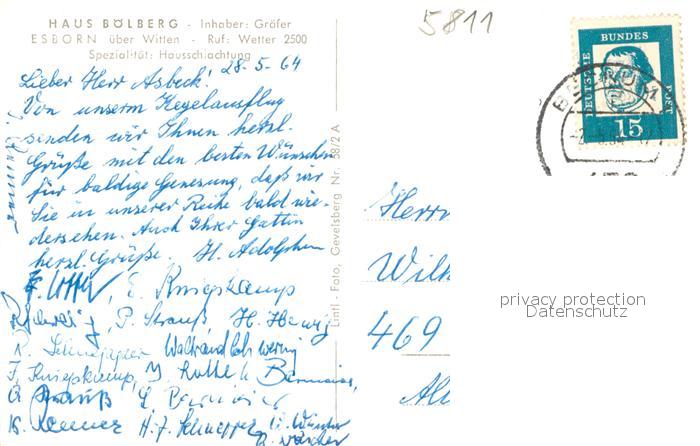 HAUS BÖLBERG - Inhaber: Gräfer
ESBORN über Witten - Ruf: Wetter 2500
Spezialität: Hausschlachtung
5811
28-5-64
Lieber Herr Asbeck!
Von unserm Kegelausflug
senden wir Ihnen herzl.
Grüße mit den besten Wünschen
für baldige Genesung, daß wir
Sie in unserer Reihe bald wie-
dersehen. Auch Ihrer Gattin
herzl. Grüße. H. Adolphen
E. Kniepkamp
P. Strauß H. Herwig
Waltraud
F. Kniepkamp,
Strauß
H. J. Schnepper
Lintl - Foto, Gevelsberg Nr. 58/2 A
DEUTSCHE BUNDES POST
15
Herrn
469
privacy protection
Datenschutz